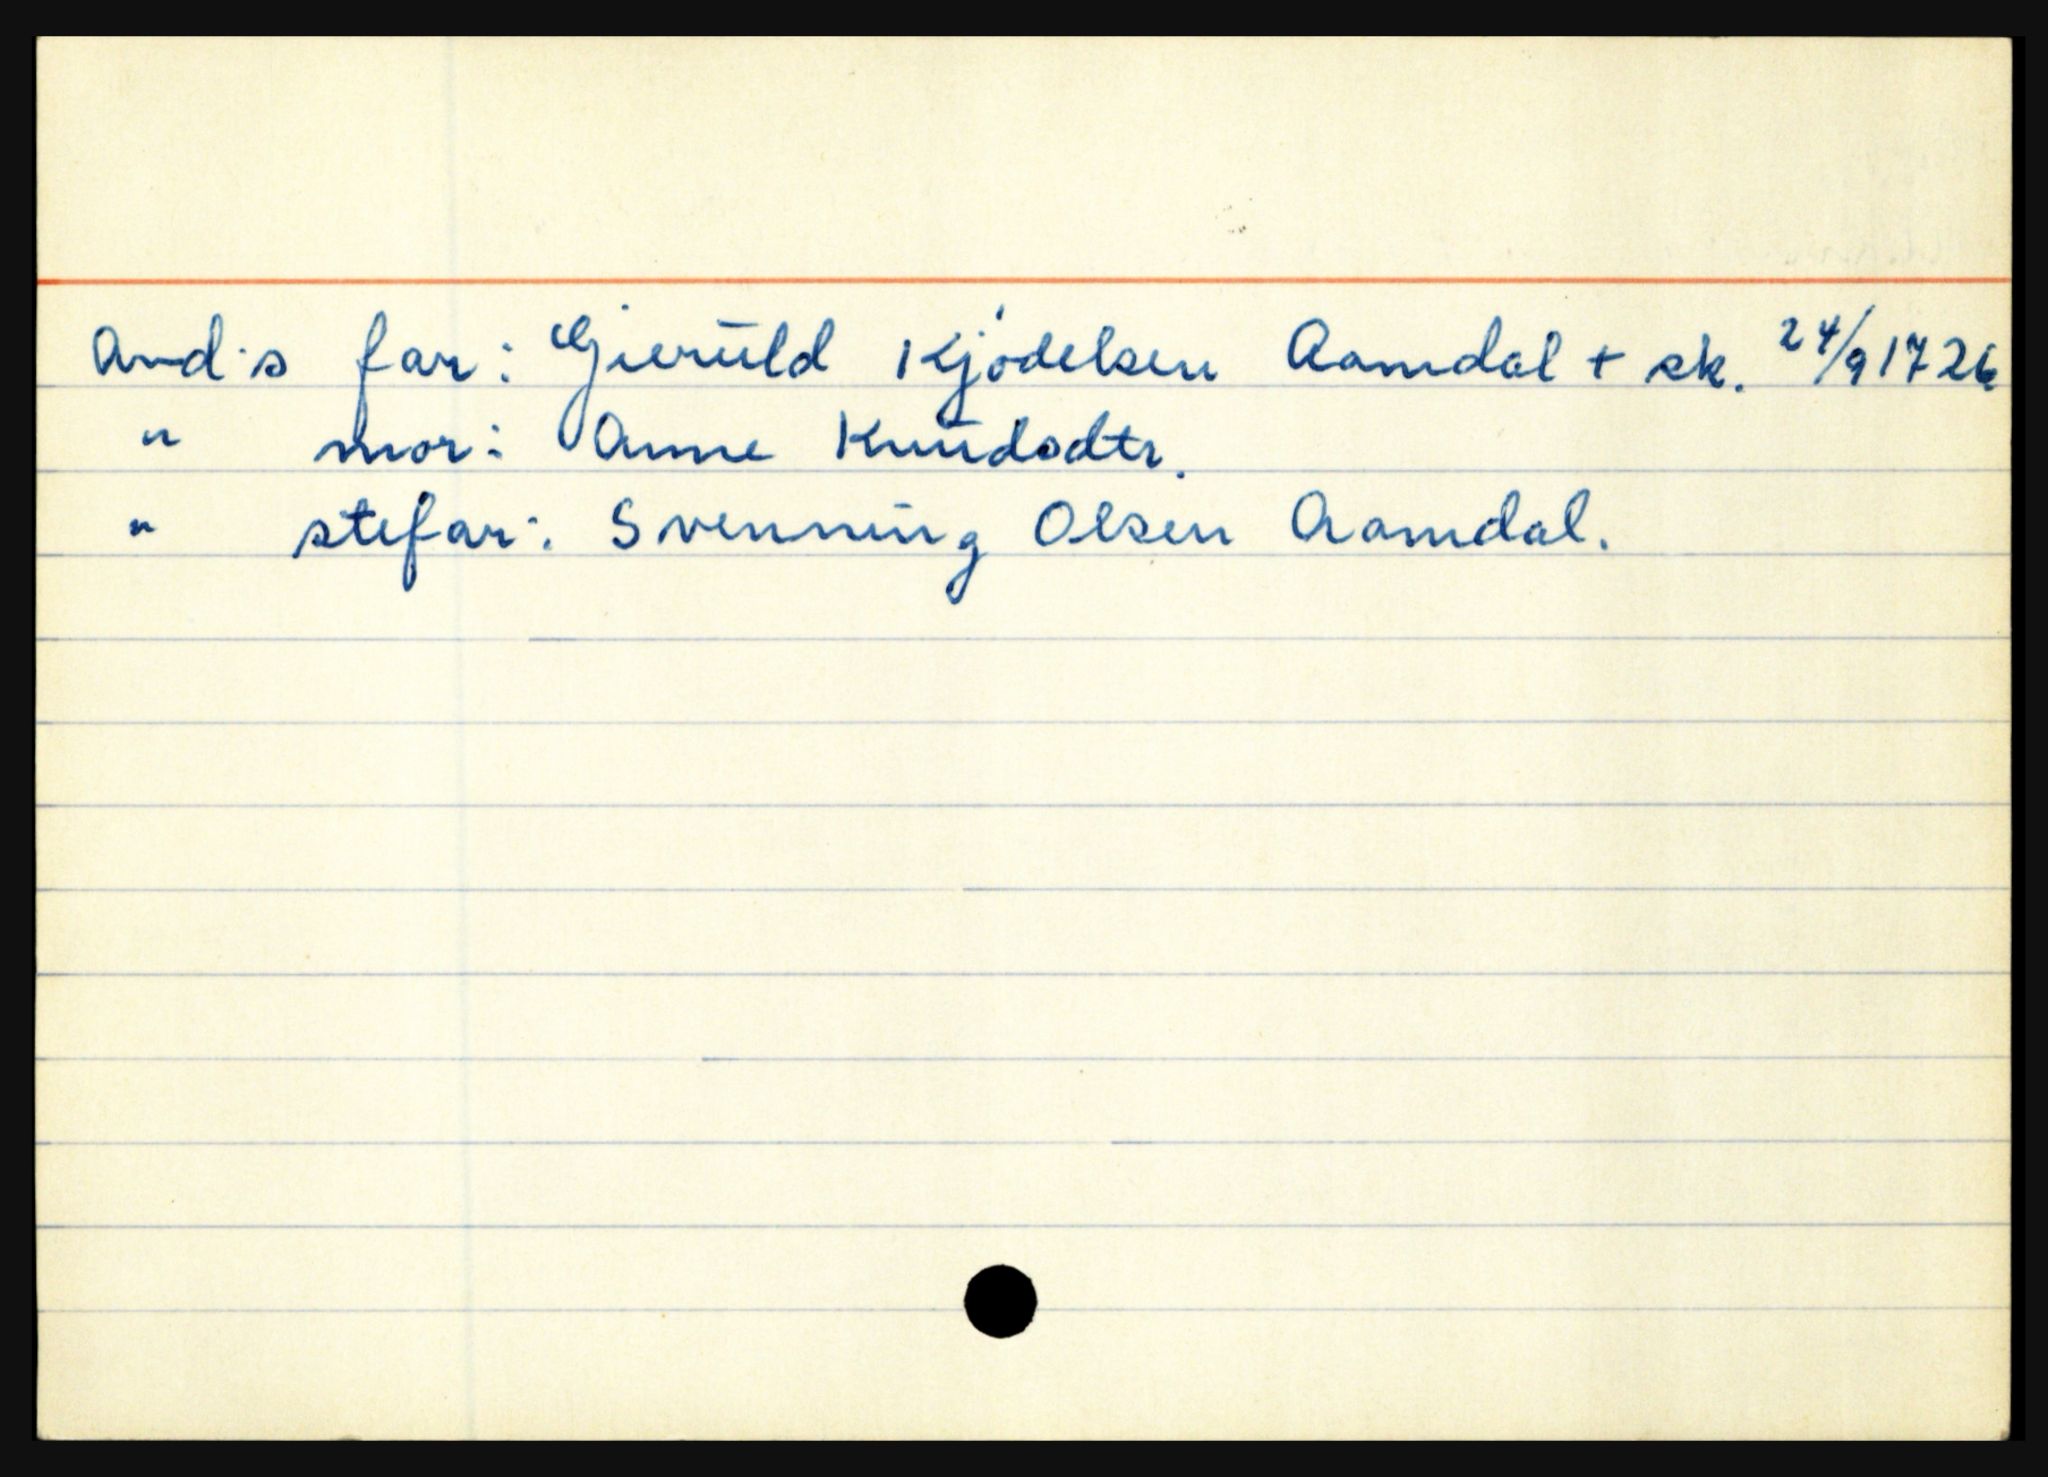 And's far: Gieruld Kjødelsen Aamdal + sk. 24/9 1726
" mor: Anne Knudsdtr.
" stefar: Svenning Olsen Aamdal.